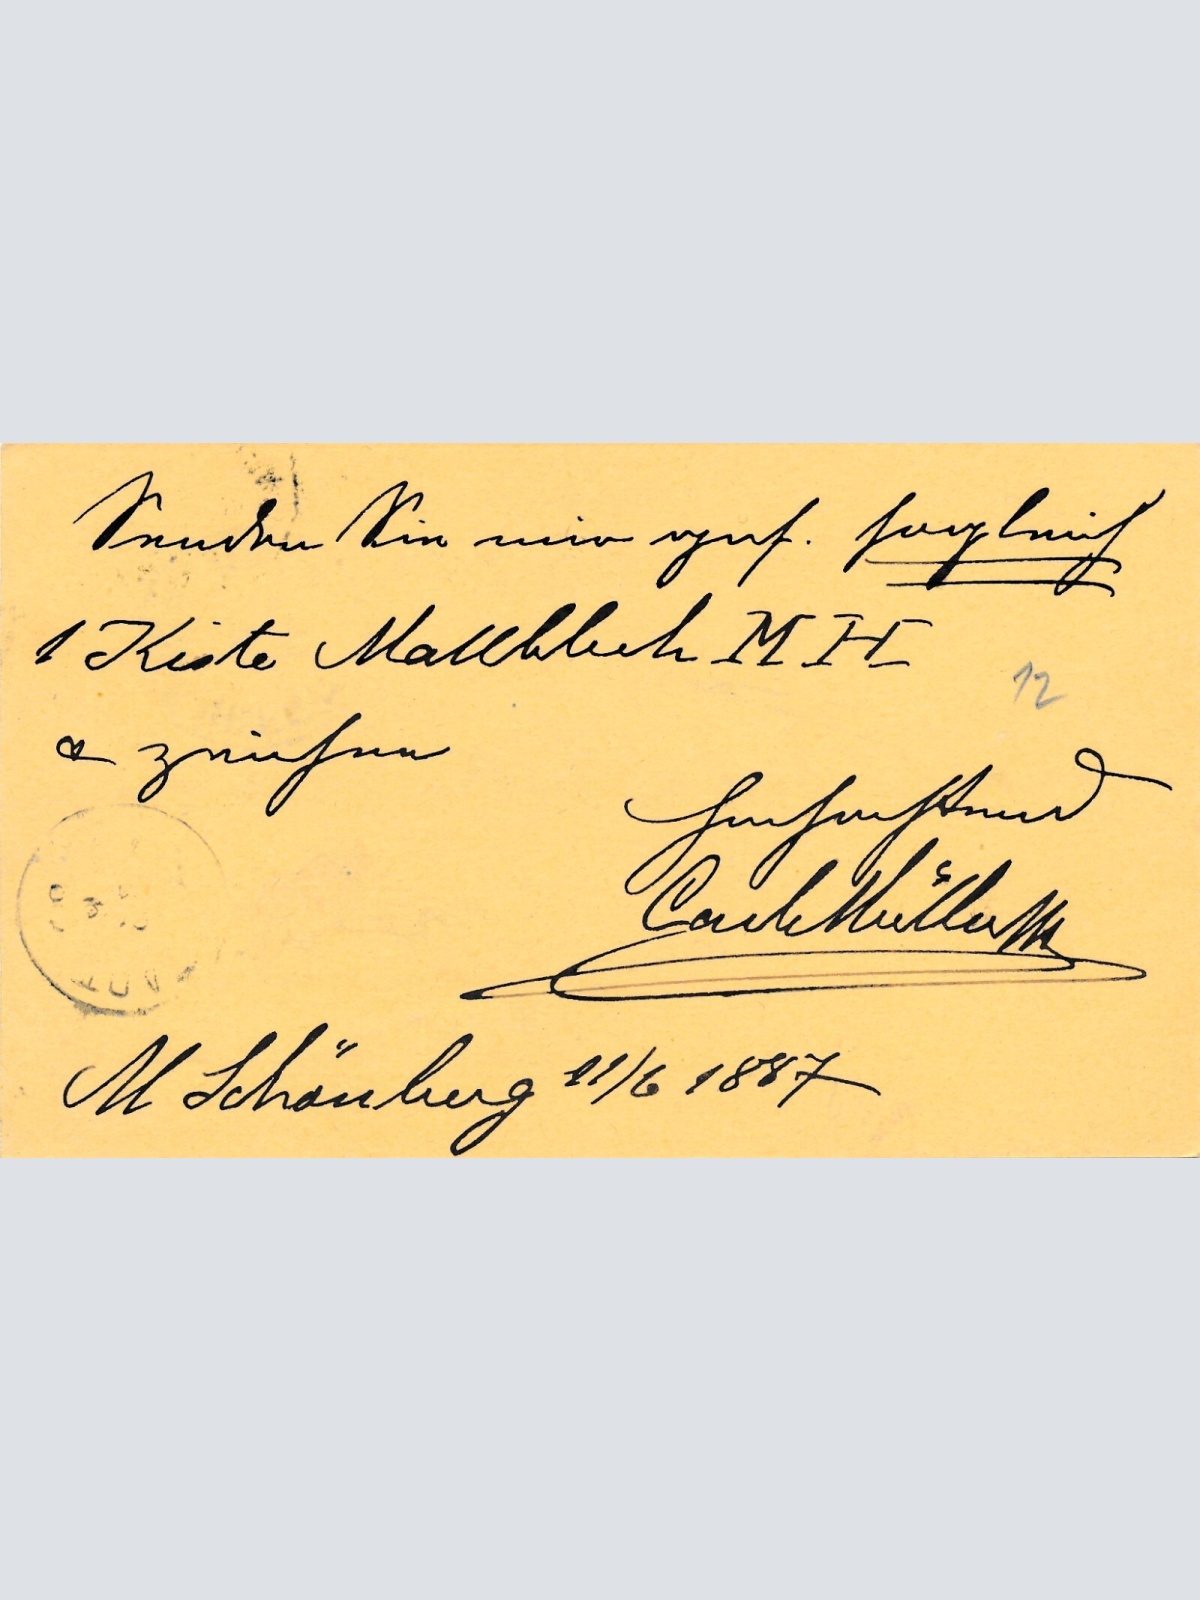 Senden Sie mir gef. sogleich
1 Kiste Mattblech M H
& zeichne
12
Hochachtend
Carl Müller
M Schönberg 11/6 1887